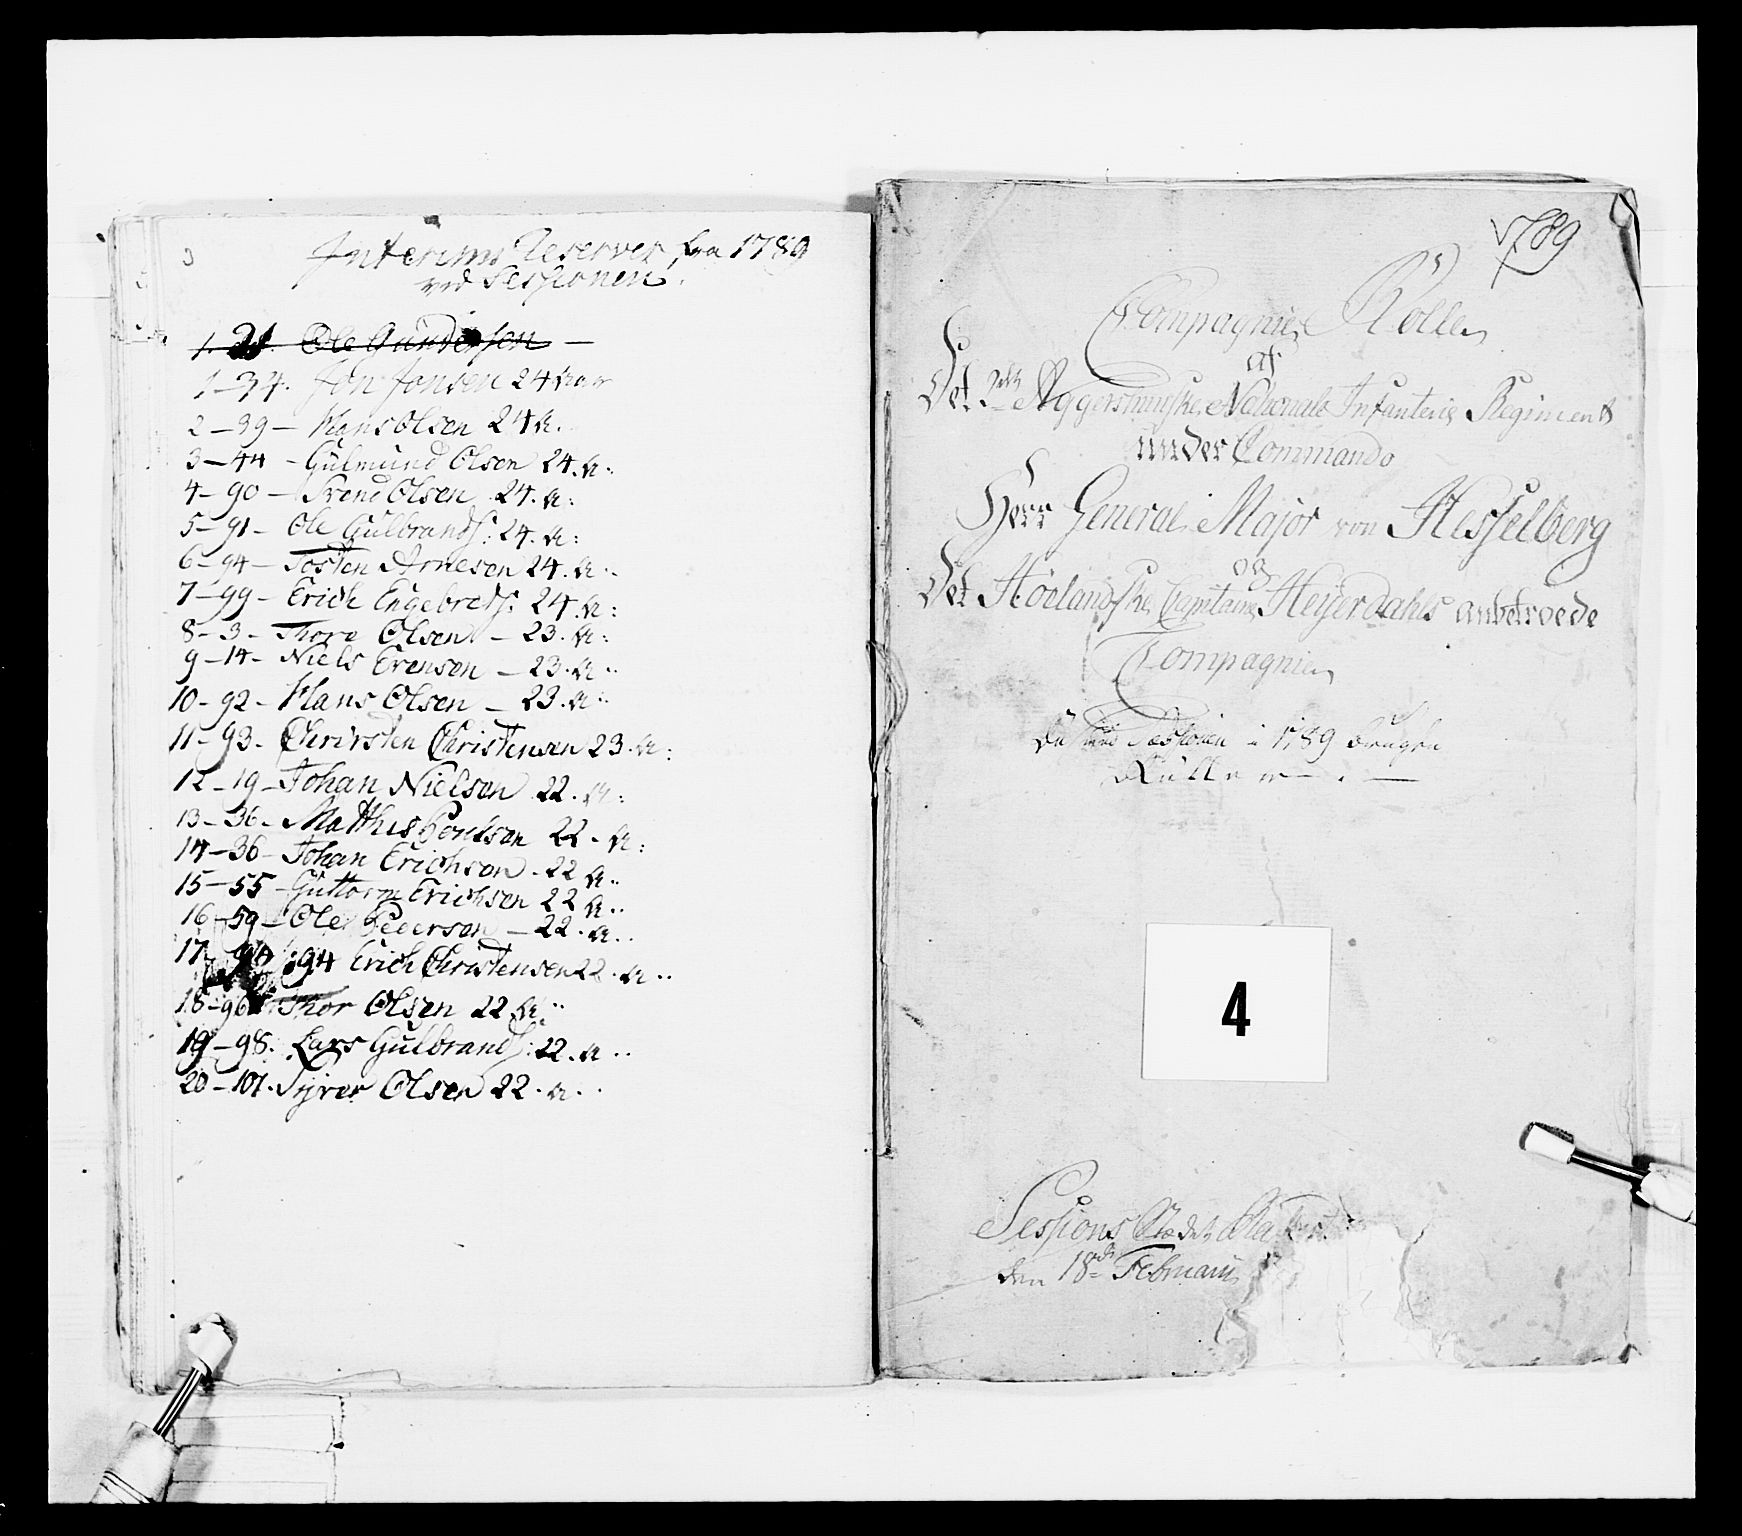 Interims Reserver fra 1789
ved Sessionen.
1. 21. Ole Gundersen —
1 – 34. Jon Jonsen 24 Aar
2 – 39 – Hans Olsen 24 A.
3 – 44 – Gulmund Olsen 24. A:
4 – 90 – Svend Olsen 24. A:
5 – 91 – Ole Gulbrands: 24. A:
6 – 94 – Tosten Arnesen 24. A:
7 – 99 – Erich Engebrets: 24. A:
8 – 3 – Thore Olsen – 23. A:
9 – 14 – Niels Evensen – 23. A:
10 – 92 – Hans Olsen – 23. A:
11 – 93 – Christen Christensen 23. A:
12 – 19 – Johan Nielsen 22. A:
13 – 36 – Matthis Poulsen 22. A:
14 – 36 – Johan Erichsen. 22 A:
15 – 55 – Guttorm Erichsen 22 A:
16 – 59 – Ole Pedersen – 22. A:
17 – 94 Erich Christensen 22. A:
18 – 96 Thor Olsen 22 A:
19 – 98. Lars Gulbrands: 22. A:
20 – 101. Syver Olsen 22. A:
1789
5)
Compagnie Rolle
af
Det 2det Aggershuusiske Nationale Infanterie Regiment
under Commando
Herr General Major von Hesselberg
og
Det Hölandske Capitaine Heyerdahls anbetroede
Compagnie
ved Sessionen i 1789 brugte
Rulle
4
Sessions Stædet
den 18de Februarii